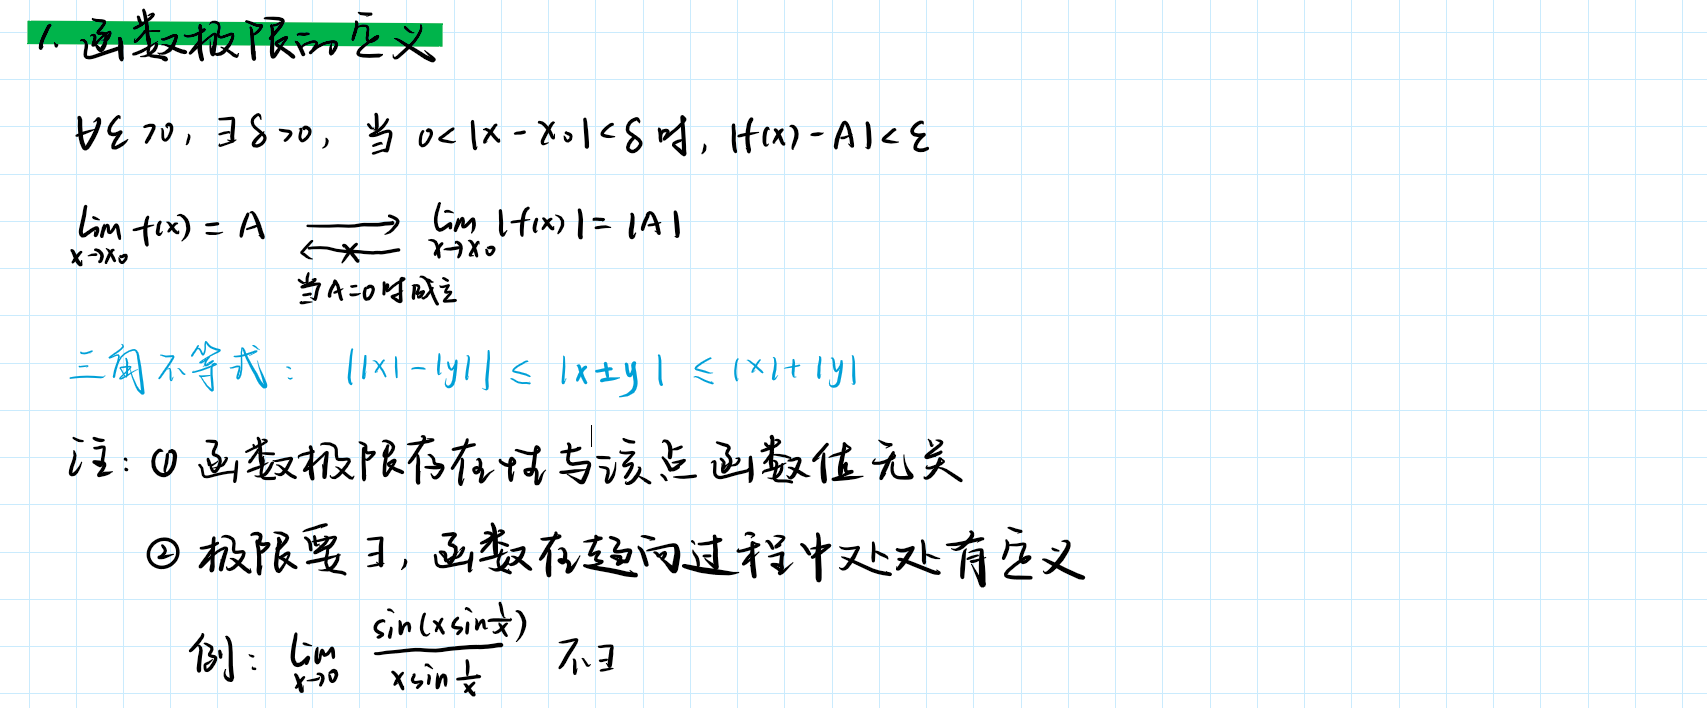 1. 函数极限的定义
∀ε>0, ∃δ>0, 当 0<|x-x₀|<δ 时, |f(x)-A|<ε
lim_{x→x₀} f(x) = A ⟶ ⟵(×) lim_{x→x₀} |f(x)| = |A|
当A=0时成立
三角不等式: ||x|-|y|| ≤ |x±y| ≤ |x|+|y|
注: ① 函数极限存在性与该点函数值无关
② 极限要∃, 函数在趋向过程中处处有定义
例: lim_{x→0} sin(x sin 1/x) / (x sin 1/x) 不∃